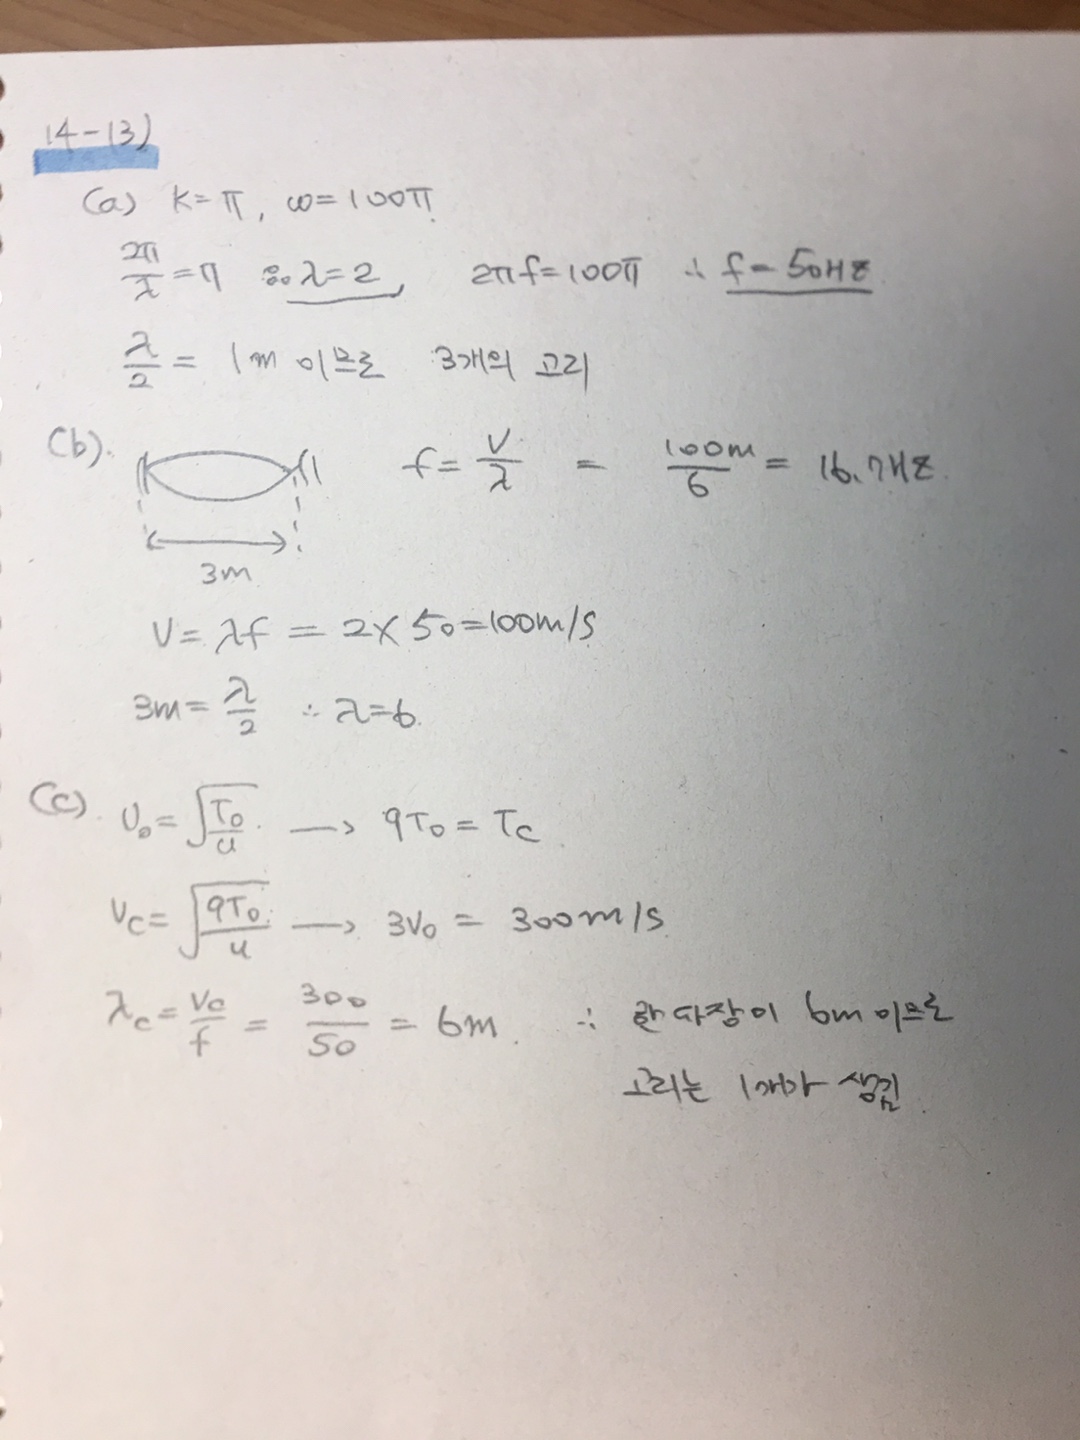 14-13)
(a) k=π, ω=100π
2π/λ=π ∴ λ=2, 2πf=100π ∴ f=50Hz
λ/2 = 1m 이므로 3개의 고리
(b). f= V/λ = 100m/6 = 16.7Hz.
3m
V= λf = 2×50=100m/s
3m= λ/2 ∴ λ=6.
(c). V₀= √(T₀/u). → 9T₀= Tc.
Vc= √(9T₀/u) → 3V₀ = 300m/s
λc= Vc/f = 300/50 = 6m. ∴ 한 파장이 6m 이므로
고리는 1개가 생김.